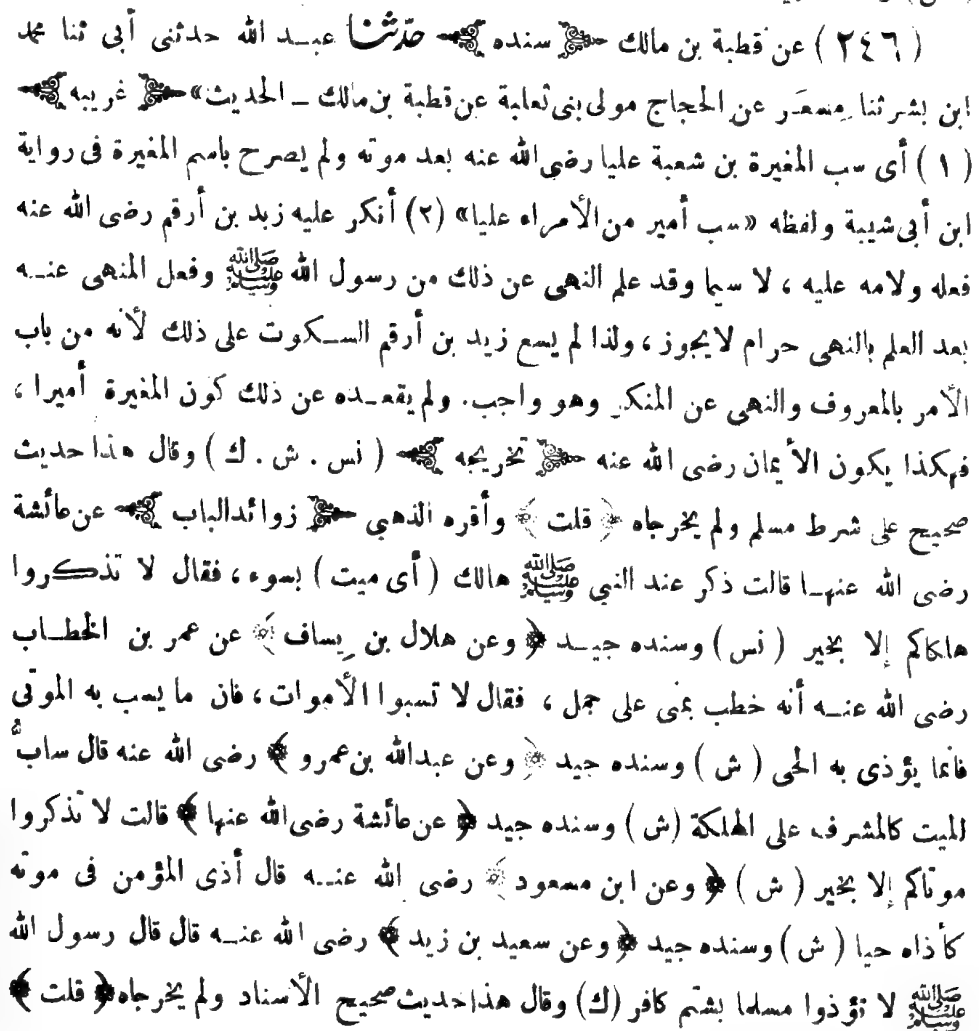 ( ٢٤٦ ) عن قطبة بن مالك ﴿ سنده ﴾ حدّثنا عبد الله حدثنى أبى ثنا محمد
ابن بشر ثنا مِسعَر عن الحجاج مولى بنى ثعلبة عن قطبة بن مالك ــ الحديث» ﴿ غريبه ﴾
( ١ ) أى سب المغيرة بن شعبة عليا رضى الله عنه بعد موته ولم يصرح باسم المغيرة فى رواية
ابن أبى شيبة ولفظه «سب أمير من الأمراء عليا» (٢) أنكر عليه زيد بن أرقم رضى الله عنه
فعله ولامه عليه ، لا سيما وقد علم النهى عن ذلك من رسول الله ﷺ وفعل المنهى عنه
بعد العلم بالنهى حرام لا يجوز ، ولذا لم يسع زيد بن أرقم السكوت على ذلك لأنه من باب
الأمر بالمعروف والنهى عن المنكر وهو واجب. ولم يقعده عن ذلك كون المغيرة أميرا ،
فهكذا يكون الأيمان رضى الله عنه ﴿ تخريجه ﴾ ( نس . ش . ك ) وقال هذا حديث
صحيح على شرط مسلم ولم يخرجاه ﴿ قلت ﴾ وأقره الذهبي ﴿ زوائد الباب ﴾ عن عائشة
رضى الله عنها قالت ذكر عند النبي ﷺ هالك ( أى ميت ) بسوء ، فقال لا تذكروا
هلكاكم إلا بخير ( نس ) وسنده جيد ﴿ وعن هلال بن يِساف ﴾ عن عمر بن الخطاب
رضى الله عنه أنه خطب بمنى على جمل ، فقال لا تسبوا الأموات ، فان ما يسب به الموتى
فانما يؤذى به الحى ( ش ) وسنده جيد ﴿ وعن عبدالله بن عمرو ﴾ رضى الله عنه قال سابُّ
الميت كالمشرف على الهلكة (ش ) وسنده جيد ﴿ عن عائشة رضى الله عنها ﴾ قالت لا تذكروا
موتاكم إلا بخير ( ش ) ﴿ وعن ابن مسعود ﴾ رضى الله عنه قال أذى المؤمن فى موته
كأذاه حيا ( ش ) وسنده جيد ﴿ وعن سعيد بن زيد ﴾ رضى الله عنه قال قال رسول الله
ﷺ لا تؤذوا مسلما بشتم كافر (ك) وقال هذا حديث صحيح الأسناد ولم يخرجاه ﴿ قلت ﴾